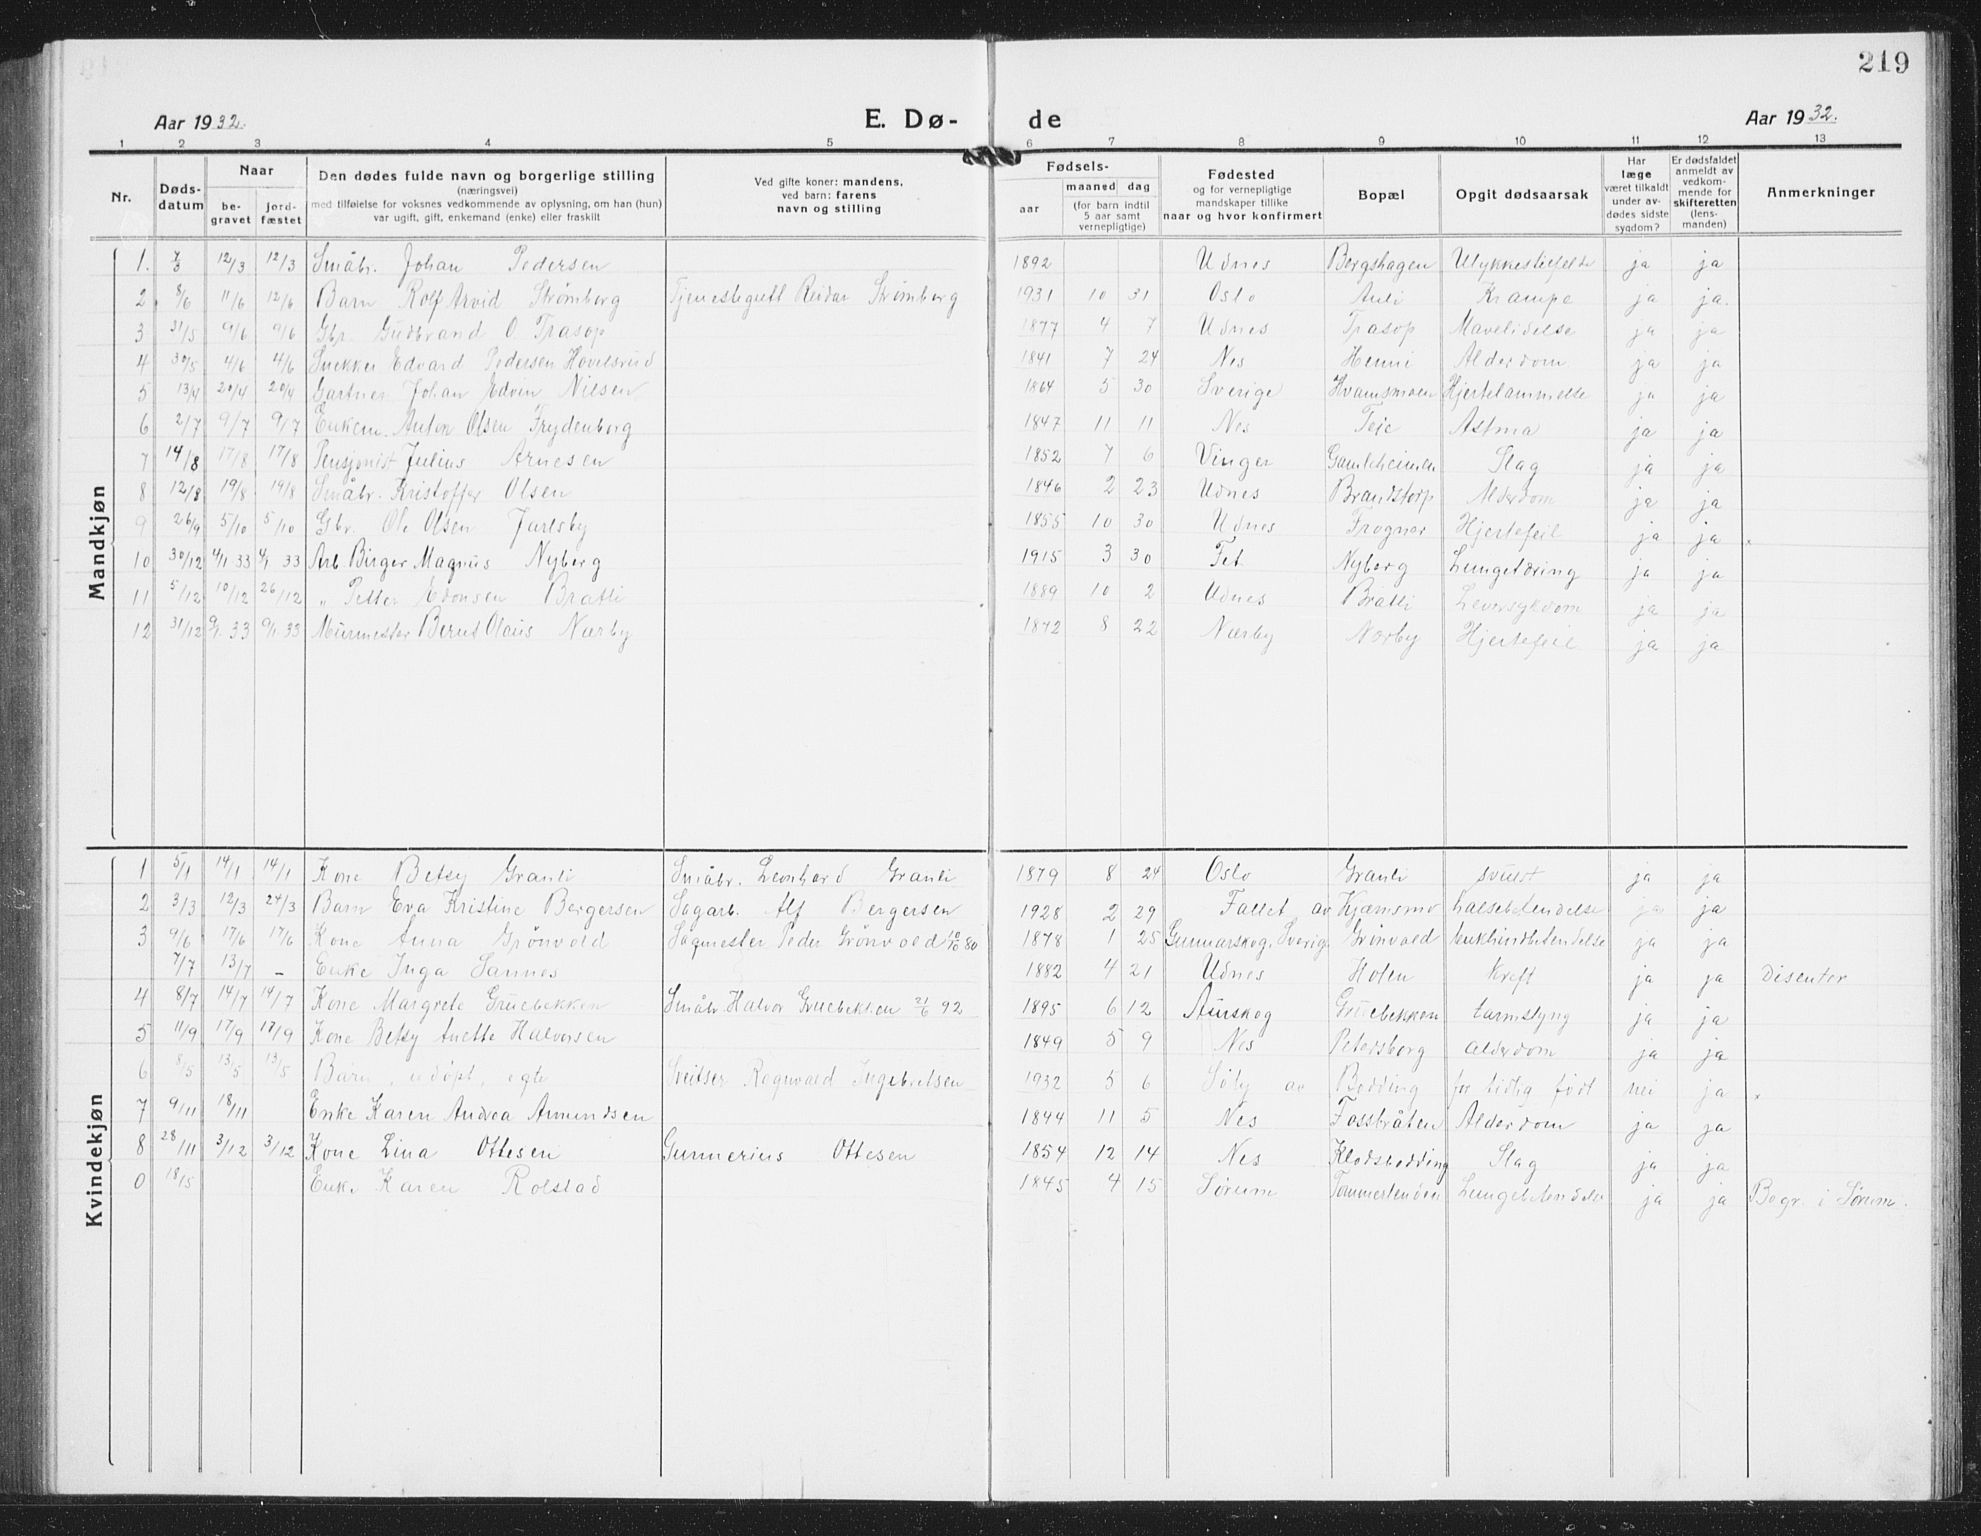 219
Aar 1932. E. Dø- de Aar 1932.
1 2 3 4 5 6 7 8 9 10 11 12 13
Nr. Døds-datum Naar be-gravet jord-fæstet Den dødes fulde navn og borgerlige stilling (næringsvei) med tilføielse for voksnes vedkommende av oplysning, om han (hun) var ugift, gift, enkemand (enke) eller fraskilt Ved gifte koner: mandens, ved barn: farens navn og stilling Fødsels- aar maaned dag (for barn indtil 5 aar samt vernepligtige) Fødested og for vernepligtige mandskaper tillike naar og hvor konfirmert Bopæl Opgit dødsaarsak Har læge været tilkaldt under av-dødes sidste sygdom? Er dødsfaldet anmeldt av vedkom-mende for skifteretten (lens-manden) Anmerkninger
Mandkjøn
1. 7/3 12/3 12/3 Småbr. Johan Pedersen 1892 Udnes Borgshagen Ulykkestilfelde ja ja
2 8/6 11/6 12/6 Barn Rolf Arvid Strømborg Tjenestegutt Reidar Strømborg 1931 10 31 Oslo Auli Krampe ja ja.
3 31/5 9/6 9/6 Gbr. Gudbrand O. Trasop 1877 4 7 Udnes Trasop Mavelidelse ja ja
4 30/5 4/6 4/6 Snekker Edvard Pedersen Hovelsrud 1841 7 24 Nes Henni Alderdom ja ja
5 13/4 20/4 20/4 Gartner Johan Edvin Nilsen 1864 5 30 Sverige Hvamsmoen Hjertelammelse ja ja
6 2/7 9/7 9/7 Enkem. Anton Olsen Frydenborg 1847 11 11 Nes Teie Astma ja ja
7 14/8 17/8 17/8 Pensjonist Julius Arnesen 1852 7 6 Vinger Gamleheimen Slag ja ja
8 12/8 19/8 19/8 Småbr. Kristoffer Olsen 1846 2 23 Udnes Brandstorp Alderdom ja ja
9 26/9 5/10 5/10 Gbr. Ole Olsen Jarlsby 1855 10 30 Udnes Frogner Hjertefeil ja ja
10 30/12 4/1 33 4/1 33 Arb. Birger Magnus Nyberg 1915 3 30 Fet Nyberg Lungetæring ja ja
11 5/12 10/12 26/12 " Petter Edonsen Bratli 1889 10 2 Udnes Bratli Leversykdom ja ja
12 31/12 9/1 33 9/1 33 Murmester Bernt Olaus Nærby 1872 8 22 Nærby Nærby Hjertefeil ja ja
Kvindekjøn
1 5/1 14/1 14/1 Kone Betsy Granli Småbr. Leonhard Granli 1879 8 24 Oslo Granli svulst ja ja
2 3/3 12/3 24/3 Barn Eva Kristine Bergersen Sagarb. Alf Bergersen 1928 2 29 Fallet av Kjæmsmo halsebetendelse ja ja
3 9/6 17/6 17/6 Kone Anna Grönvold Sagmester Peder Grönvold 10/10 80 1878 1 25 Gunnarskog, Sverig. Grönvold bukhindbetendelse ja ja
7/7 13/7 - Enke Inga Sannes 1882 4 21 Udnes Holen Kreft ja ja Disenter
4 8/7 14/7 14/7 Kone Margrete Gruebekken Småbr. Halvor Gruebekken 21/6 92 1895 6 12 Aurskog Gruebekken tarmslyng ja ja
5 11/9 17/9 17/9 Kone Betsy Anette Halvorsen 1849 5 9 Nes Petersborg alderdom ja ja
6 8/5 13/5 13/5 Barn, udöpt, egte Sveitser Ragnvald Ingebretsen 1932 5 6 Søly av Bodding for tidlig födt nei ja
7 9/11 18/11 Enke Karen Andrea Amundsen 1844 11 5 Nes Fossbråten Alderdom ja ja
8 28/11 3/12 3/12 Kone Lina Ottesen Gunnerius Ottesen 1854 12 14 Nes Klodsbodding Slag ja ja
0 18/5 Enke Karen Rolstad 1845 4 15 Sørum Tommerstenden Lungebetendelse ja ja Begr. i Sørum.